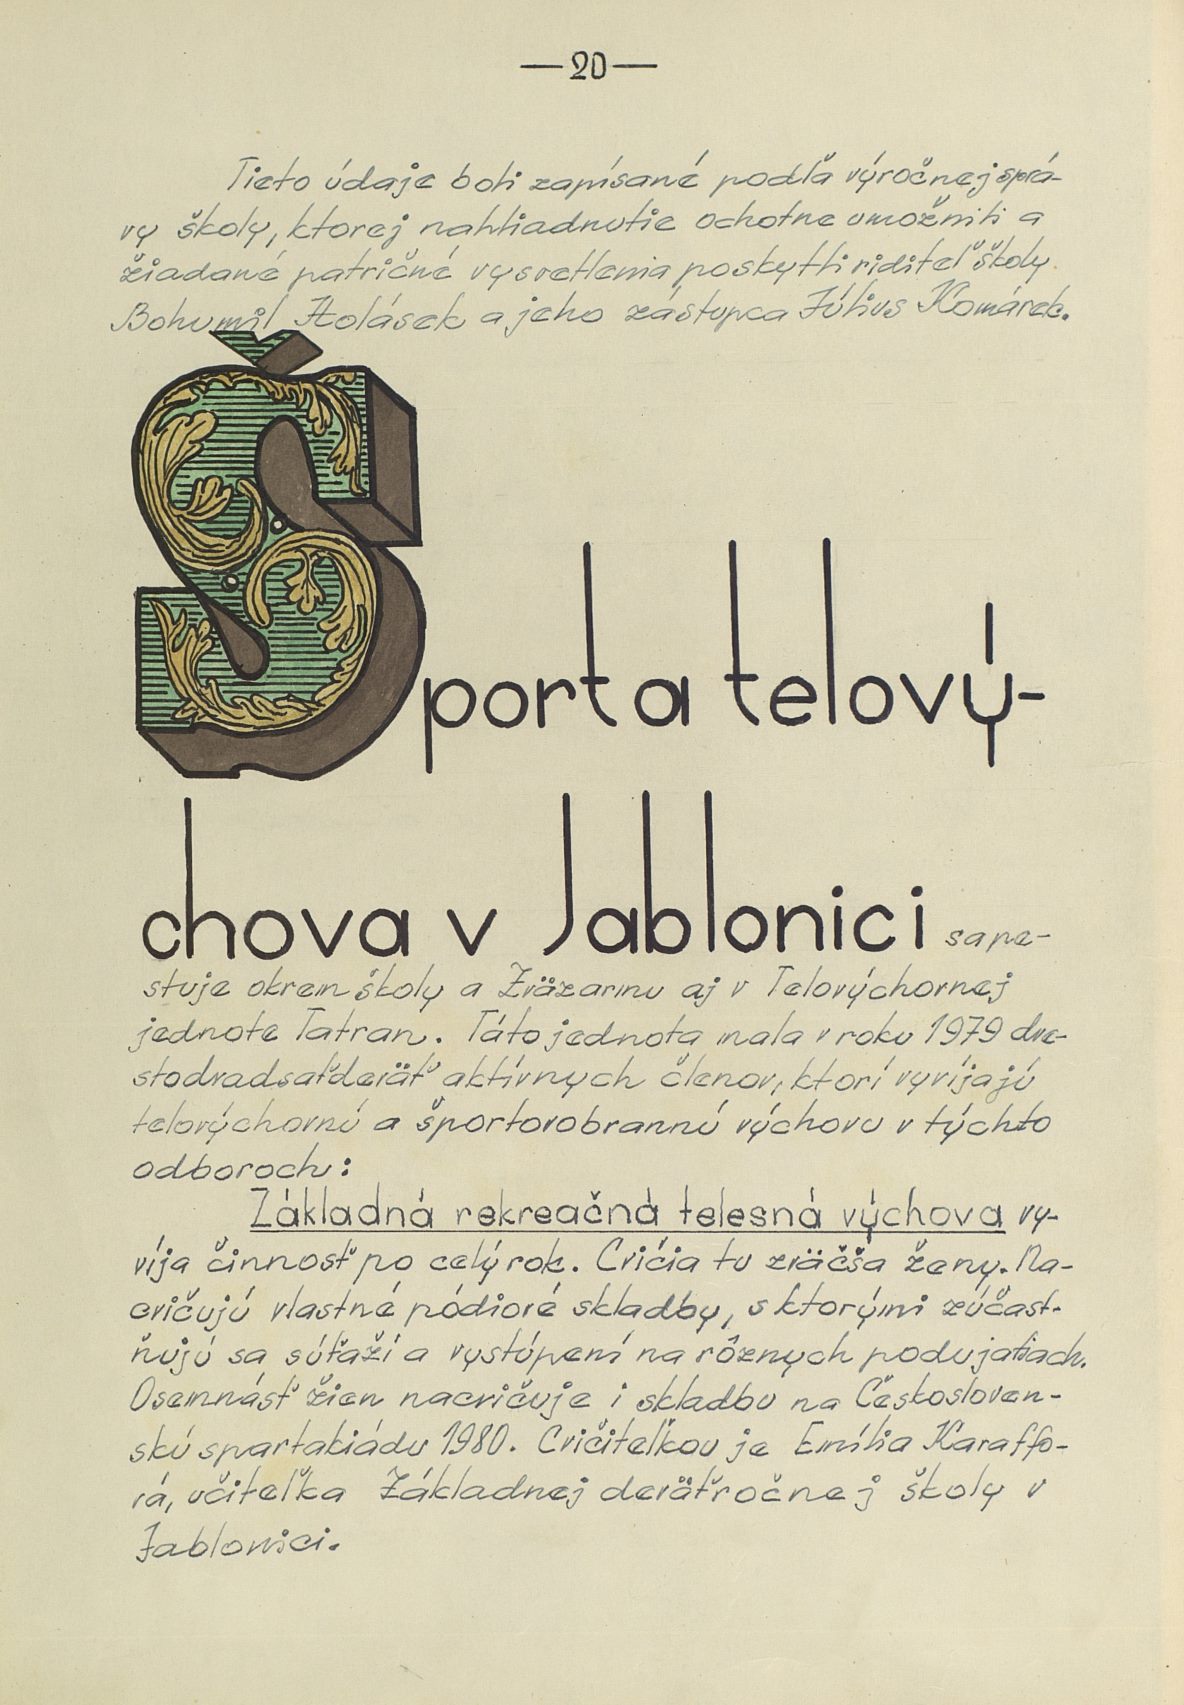 — 20 —
Tieto údaje boli zapísané podľa výročnej sprá-
vy školy, ktorej nahliadnutie ochotne umožnili a
žiadané patričné vysvetlenia poskytli riditeľ školy
Bohumil Holásek a jeho zástupca Július Komárek.
Šport a telový-
chova v Jablonici sa pe-
stuje okrem školy a Zväzarmu aj v Telovýchovnej
jednote Tatran. Táto jednota mala v roku 1979 dve-
stodvadsaťdeväť aktívnych členov, ktorí vyvíjajú
telovýchovnú a športovobrannú výchovu v týchto
odboroch:
Základná rekreačná telesná výchova vy-
víja činnosť po celý rok. Cvičia tu zväčša ženy. Na-
cvičujú vlastné pódiové skladby, s ktorými zúčast-
ňujú sa súťaží a vystúpení na rôznych podujatiach.
Osemnásť žien nacvičuje i skladbu na Českosloven-
skú spartakiádu 1980. Cvičiteľkou je Emília Karaffo-
vá, učiteľka Základnej deväťročnej školy v
Jablonici.